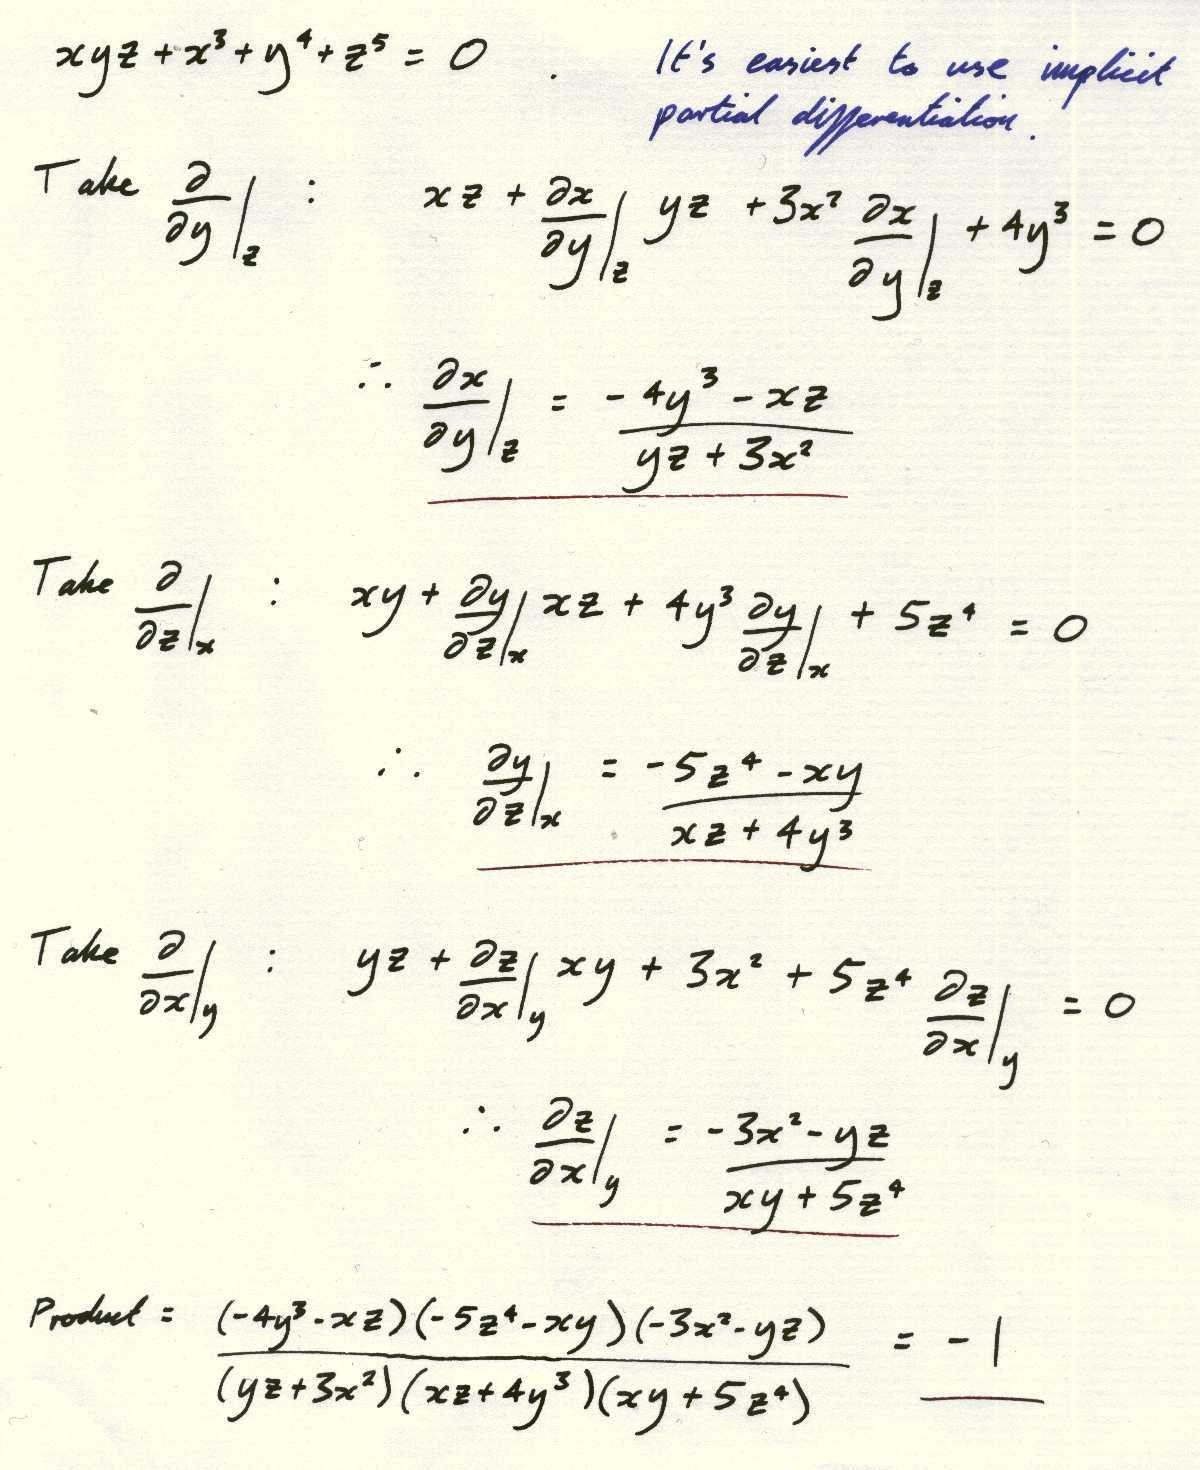 xyz + x³ + y⁴ + z⁵ = 0 .
It's easiest to use implicit
partial differentiation.
Take ∂/∂y|z : xz + ∂x/∂y|z yz + 3x² ∂x/∂y|z + 4y³ = 0
∴ ∂x/∂y|z = (-4y³ - xz)/(yz + 3x²)
Take ∂/∂z|x : xy + ∂y/∂z|x xz + 4y³ ∂y/∂z|x + 5z⁴ = 0
∴ ∂y/∂z|x = (-5z⁴ - xy)/(xz + 4y³)
Take ∂/∂x|y : yz + ∂z/∂x|y xy + 3x² + 5z⁴ ∂z/∂x|y = 0
∴ ∂z/∂x|y = (-3x² - yz)/(xy + 5z⁴)
Product = (-4y³ - xz)(-5z⁴ - xy)(-3x² - yz)/(yz + 3x²)(xz + 4y³)(xy + 5z⁴) = -1